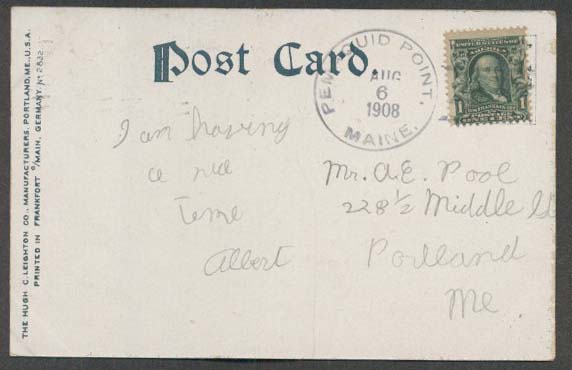 Post Card.
PEMAQUID POINT,
AUG
6
1908
MAINE.
1 1
I am having
a nice
time
Albert
Mr. A.E. Pool
228 1/2 Middle St
Portland
Me.
THE HUGH C. LEIGHTON CO., MANUFACTURERS, PORTLAND, ME., U.S.A.
PRINTED IN FRANKFORT O/MAIN, GERMANY.